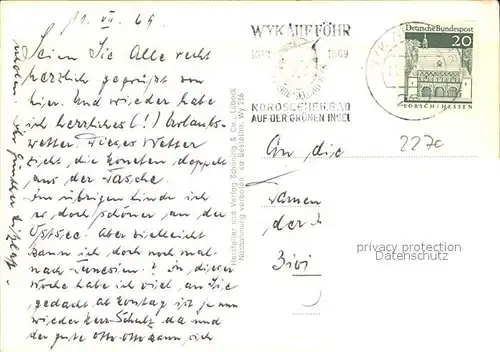 11. VII. 69
Seien Sie Alle recht
herzlich gegrüßt von
hier. Und wieder habe
ich herrliches (!) Urlaubs-
wetter. Dieses Wetter
zieht die Moneten doppelt
aus der Tasche.
Im übrigen finde ich
es doch schöner an der
Ostsee. Aber vielleicht
kann ich doch noch mal
nach Tunesien? In dieser
Woche habe ich viel an Sie
gedacht. ab Montag ist ja nun
wieder Herr Schulz da und
der gute Otto-Otto kann sich
erholen. Ihr Günther
Hersteller und Verlag Schöning & Co., Lübeck
Nachahmung verboten Bestellnr. Wy 286
WYK AUF FÖHR
1819 1969
NORDSEEHEILBAD
AUF DER GRÜNEN INSEL
Deutsche Bundespost
20
LORSCH/HESSEN
227c
An die
Damen
der
privacy protection
Datenschutz